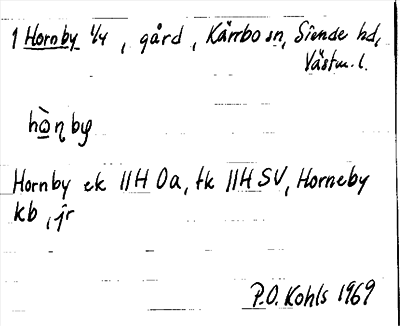 1 Hornby 1/4, gård, Kärrbo sn, Siende hd,
Västm. l.
hò̲ɳby
Hornby ek 11H 0a, tk 11H SV, Horneby
kb, jr
P.O. Kohls 1969